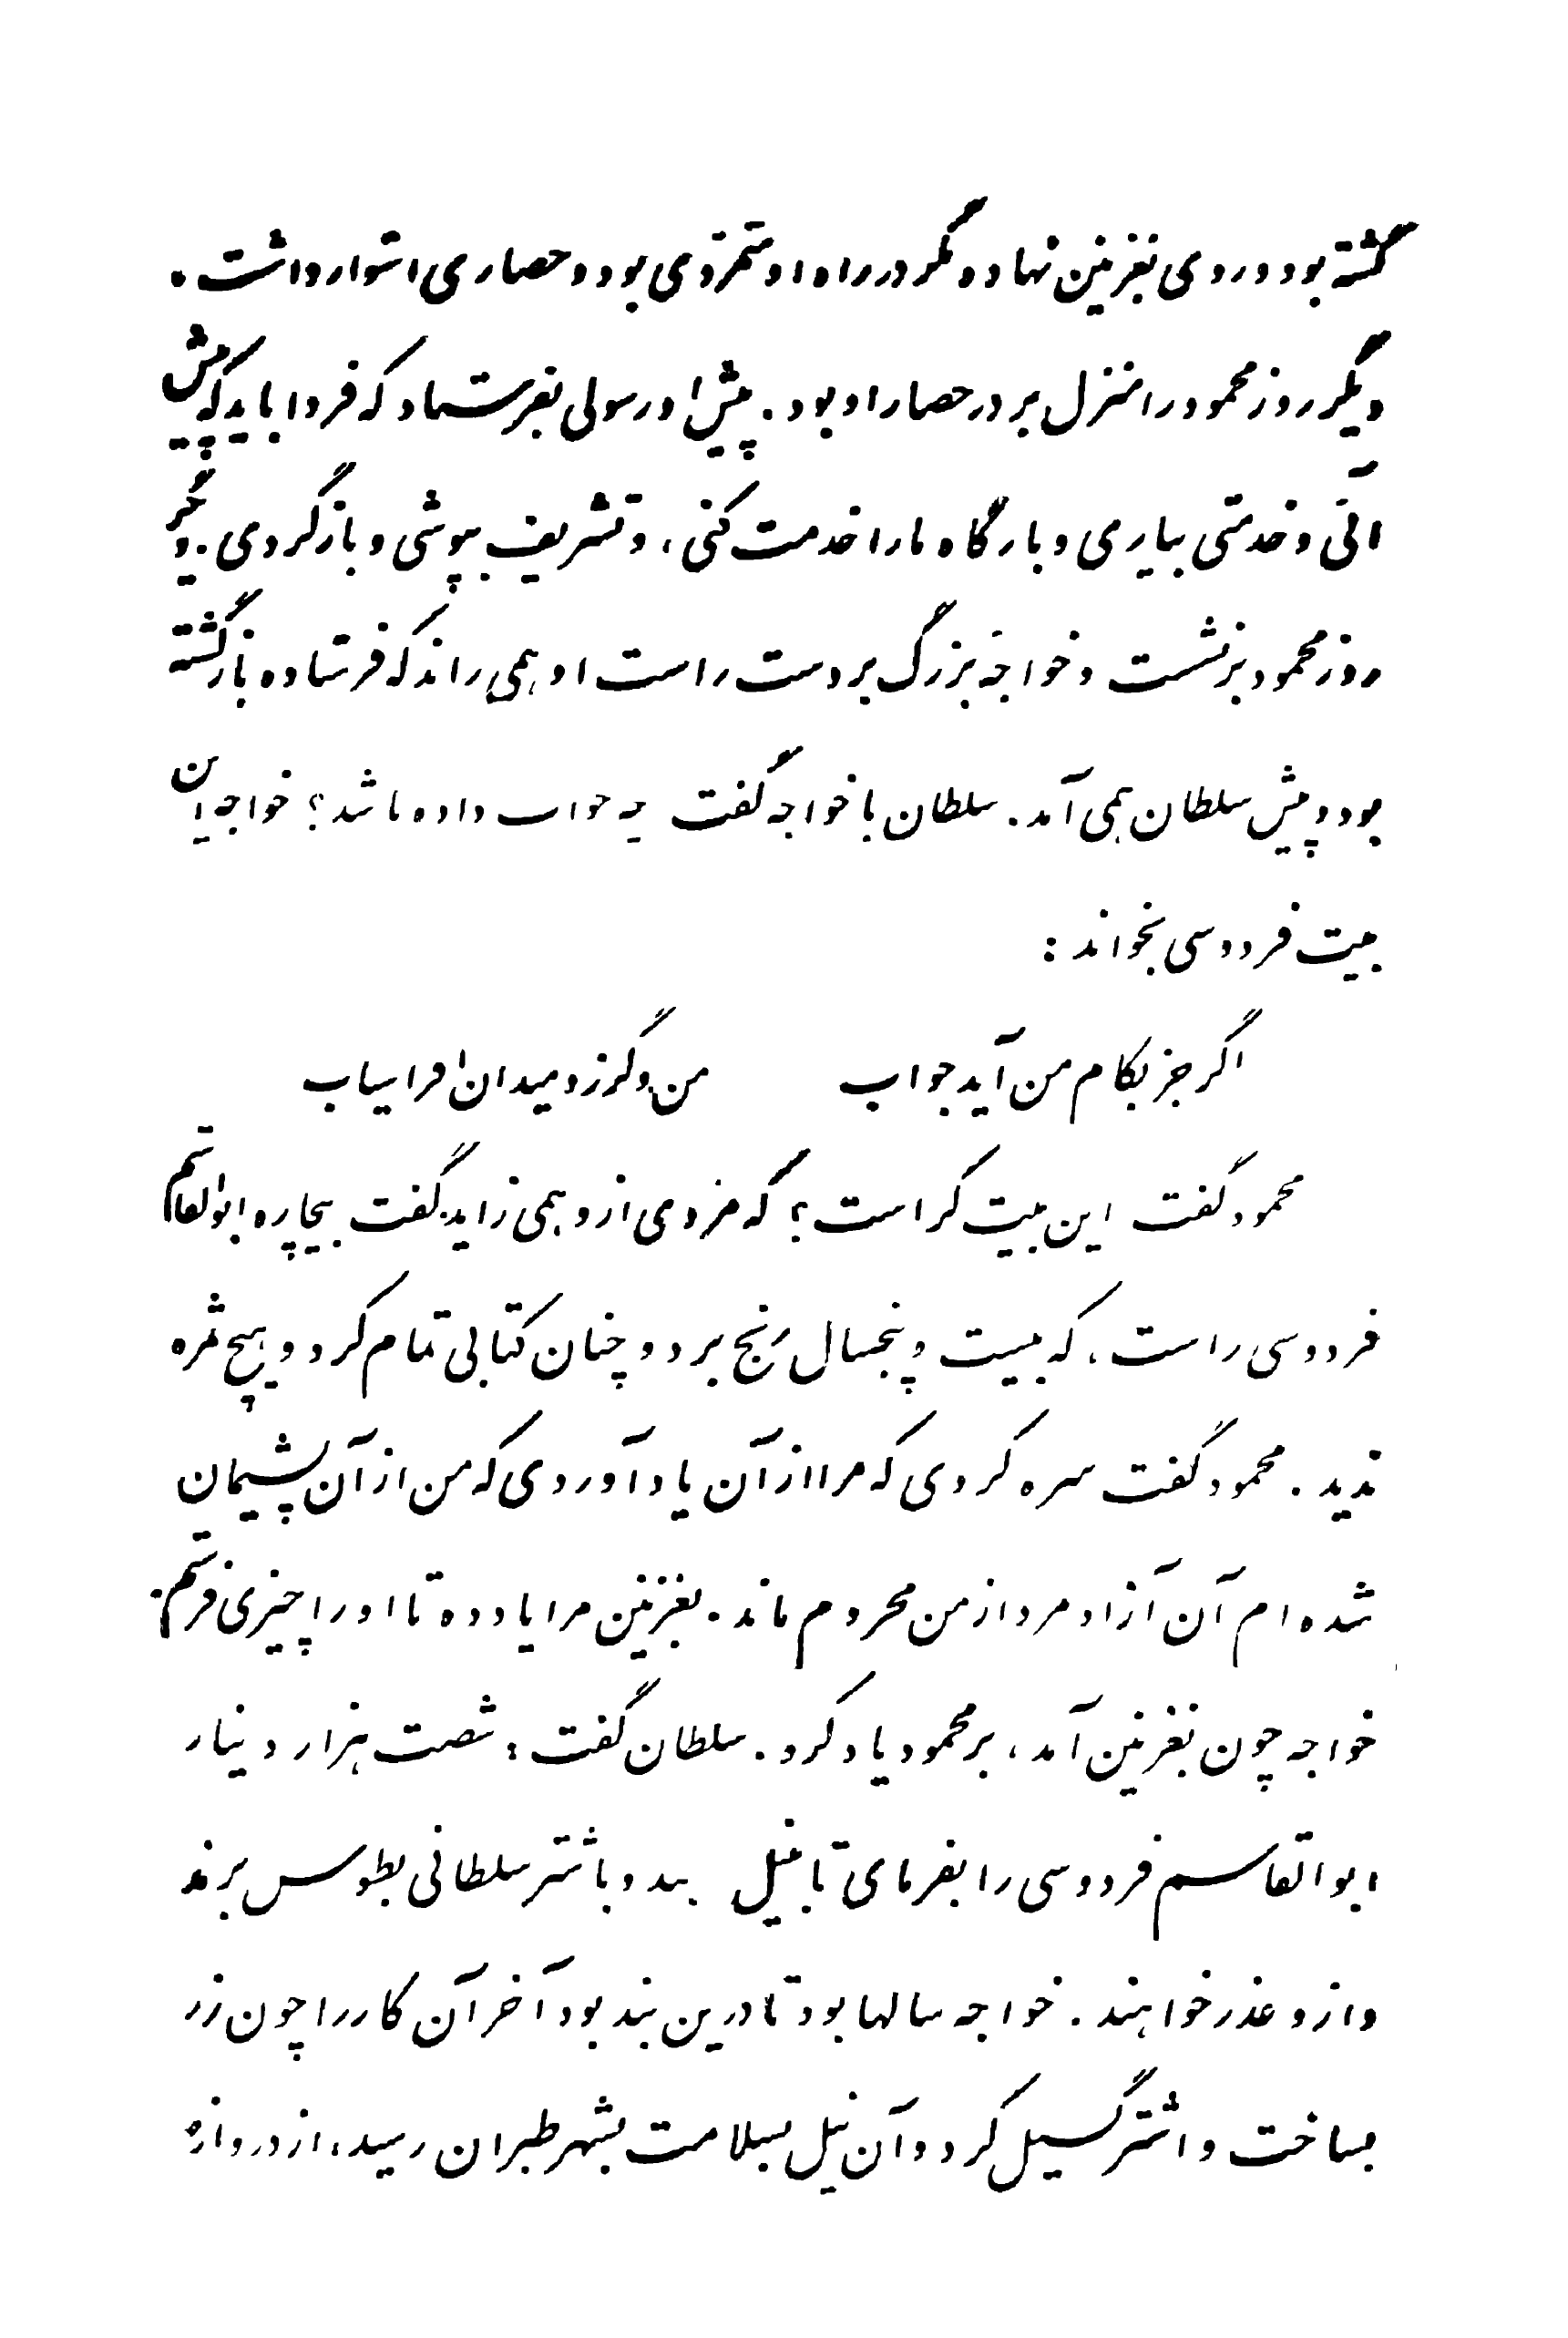 گشته بود و روی بغزنین نهاده مگر در راه او متمردی بود و حصاری استوار داشت.
دیگر روز محمود را منزل بر در حصار او بود. پیش او رسولی بفرستاد که فردا باید که پیش
آئی و خدمتی بیاری و بارگاه ما را خدمت کنی، و تشریف بپوشی و بازگردی. دیگر
روز محمود برنشست و خواجهٔ بزرگ بر دست راست او همی راند که فرستاده بازگشته
بود و پیش سلطان همی آمد. سلطان با خواجه گفت چه جواب داده باشد؟ خواجه این
بیت فردوسی بخواند:
اگر جز بکام من آید جواب من و گرز و میدان افراسیاب
محمود گفت این بیت کراست؟ که مردی ازو همی زاید. گفت بیچاره ابوالقاسم
فردوسی راست، که بیست و پنجسال رنج برد و چنان کتابی تمام کرد و هیچ ثمره
ندید. محمود گفت سره کردی که مرا از آن یاد آوردی که من از آن پشیمان
شده ام آن آزاد مرد از من محروم ماند. بغزنین مرا یاد ده تا او را چیزی فرستم.
خواجه چون بغزنین آمد، بر محمود یاد کرد. سلطان گفت: شصت هزار دینار
ابوالقاسم فردوسی را بفرمای تا بنیل بدهد و باشتر سلطانی بطوس برند
و ازو عذر خواهند. خواجه سالها بود تا درین بند بود آخر آن کار را چون زر
بساخت و اشتر گسیل کرد و آن نیل بسلامت بشهر طبران رسید، از دروازهٔ